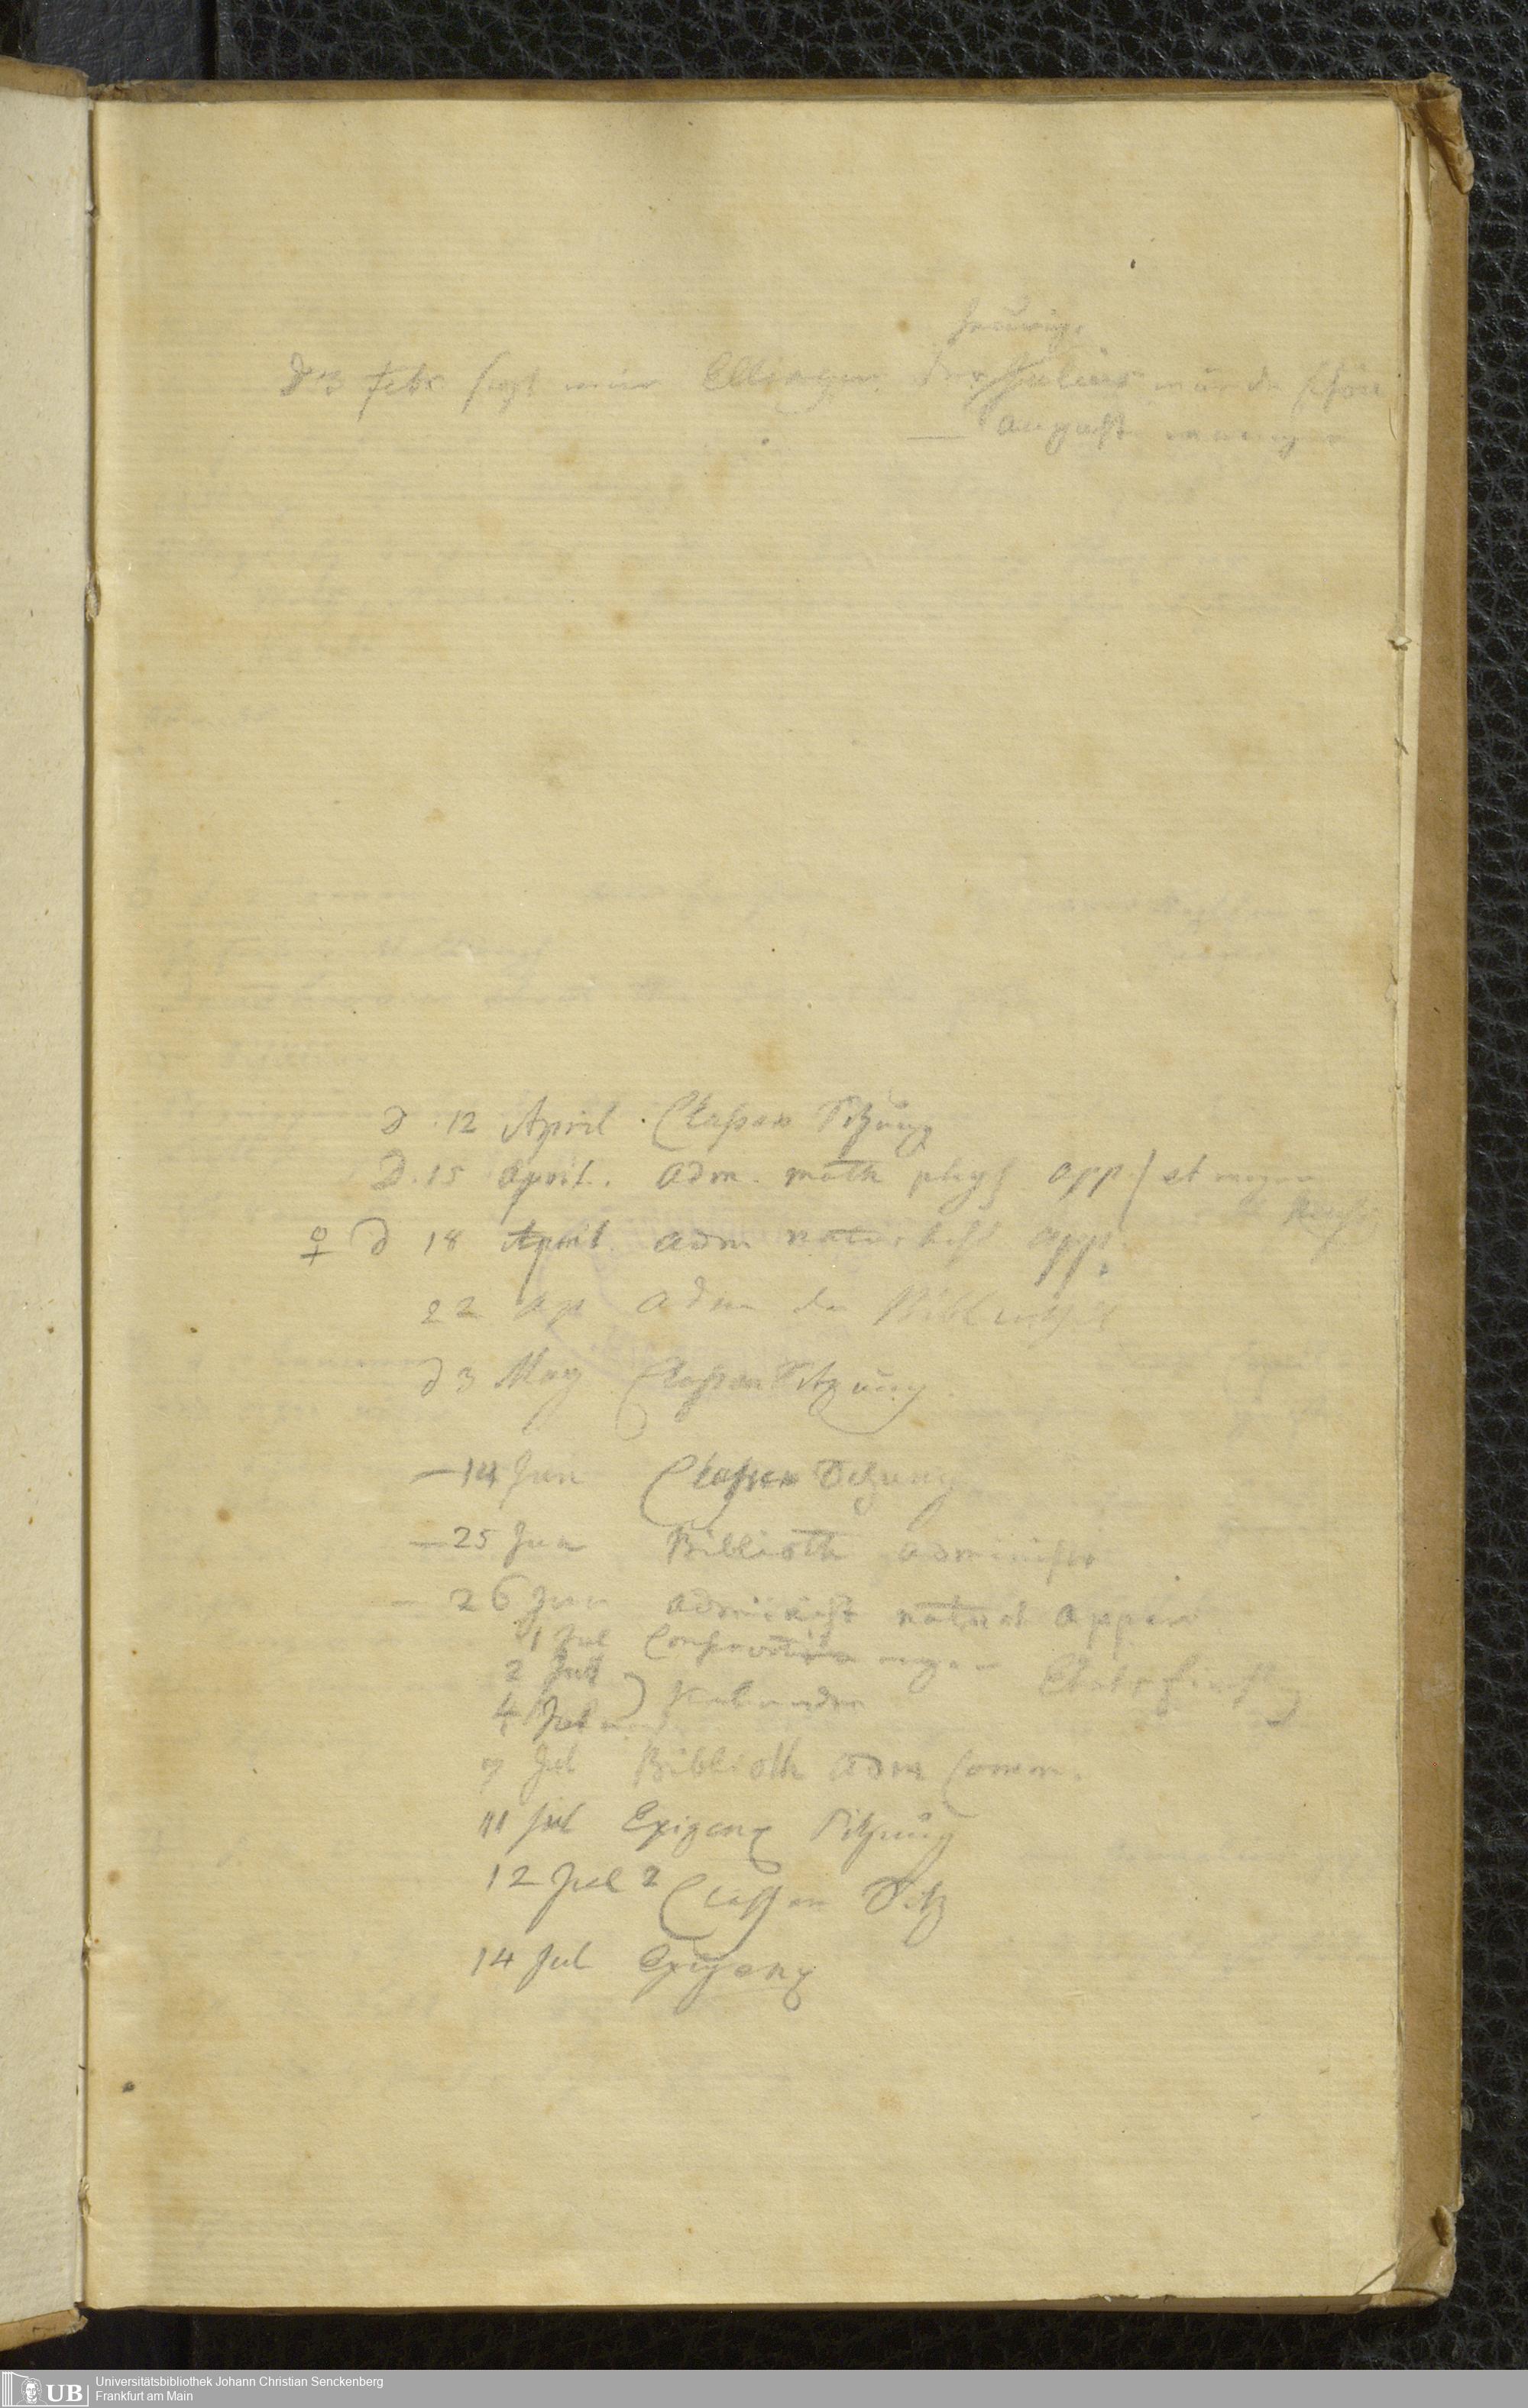 heurig.
d 3 Febr sagt mir Ellinger der Julius würde schön
— August weniger
d . 12 April . Classen Sitzung
d. 15 April. adm. math phys app. / et
♀ d 18 April adm natur hist app.
22 ap adm der Bibliothek
d 3 May Classen Sitzung.
— 14 Jun Classen Sitzung
— 25 Jun Biblioth administr
— 26 Jun administ natural appar
1 Jul Conservation
2 Jul
4 Jul Kalender
7 Jul Biblioth adm Comm.
11 Jul Exigenz Sitzung
12 Jul 2 Classen Sitz
14 Jul Exigenz
UB Universitätsbibliothek Johann Christian Senckenberg
Frankfurt am Main